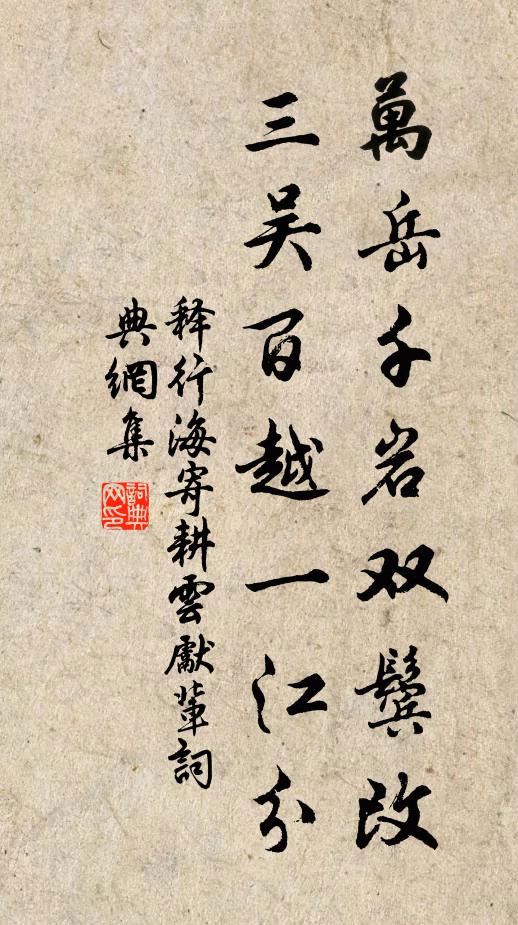 萬岳千岩双鬓改
三吴百越一江分
释行海寄耕雲獻輩詞
典網集
詞典
网印